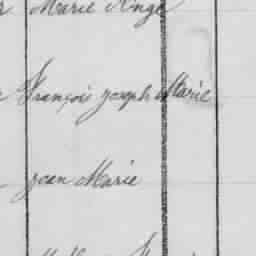 Marie Ange
François joseph Marie
jean Marie